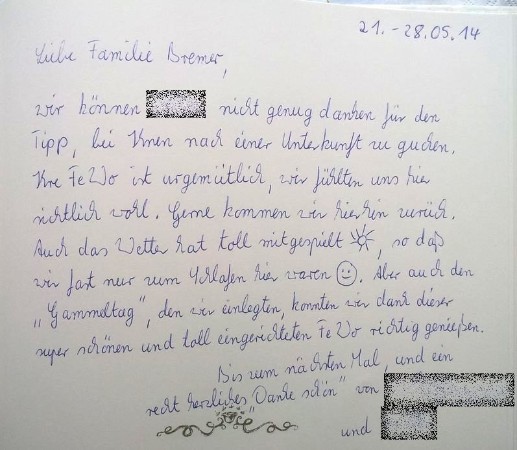 21. - 28.05.14
Liebe Familie Bremer,
wir können nicht genug danken für den
Tipp, bei Ihnen nach einer Unterkunft zu gucken.
Ihre FeWo ist urgemütlich, wir fühlten uns hier
richtlich wohl. Gerne kommen wir hierhin zurück.
Auch das Wetter hat toll mitgespielt, so daß
wir fast nur zum Schlafen hier waren. Aber auch den
„Gammeltag", den wir einlegten, konnten wir dank dieser
super schönen und toll eingerichteten FeWo richtig genießen.
Bis zum nächsten Mal, und ein
recht herzliches „Danke schön" von
und